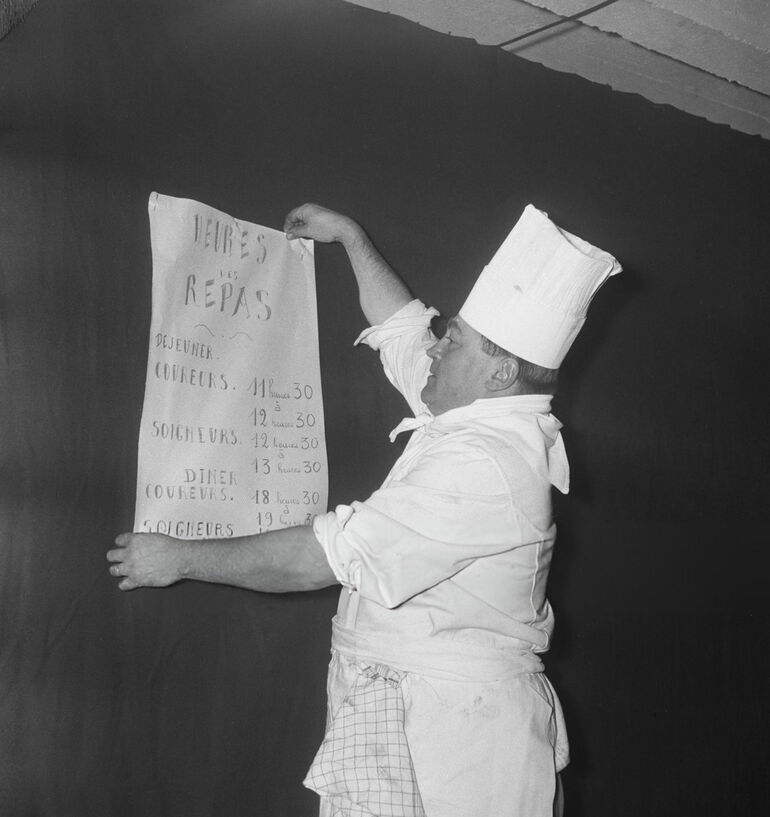 HEURES
DES
REPAS
DEJEUNER.
COUREURS. 11 heures 30
à
12 heures 30
SOIGNEURS. 12 heures 30
à
13 heures 30
DINER
COUREURS. 18 heures 30
à
19 heures 30
SOIGNEURS